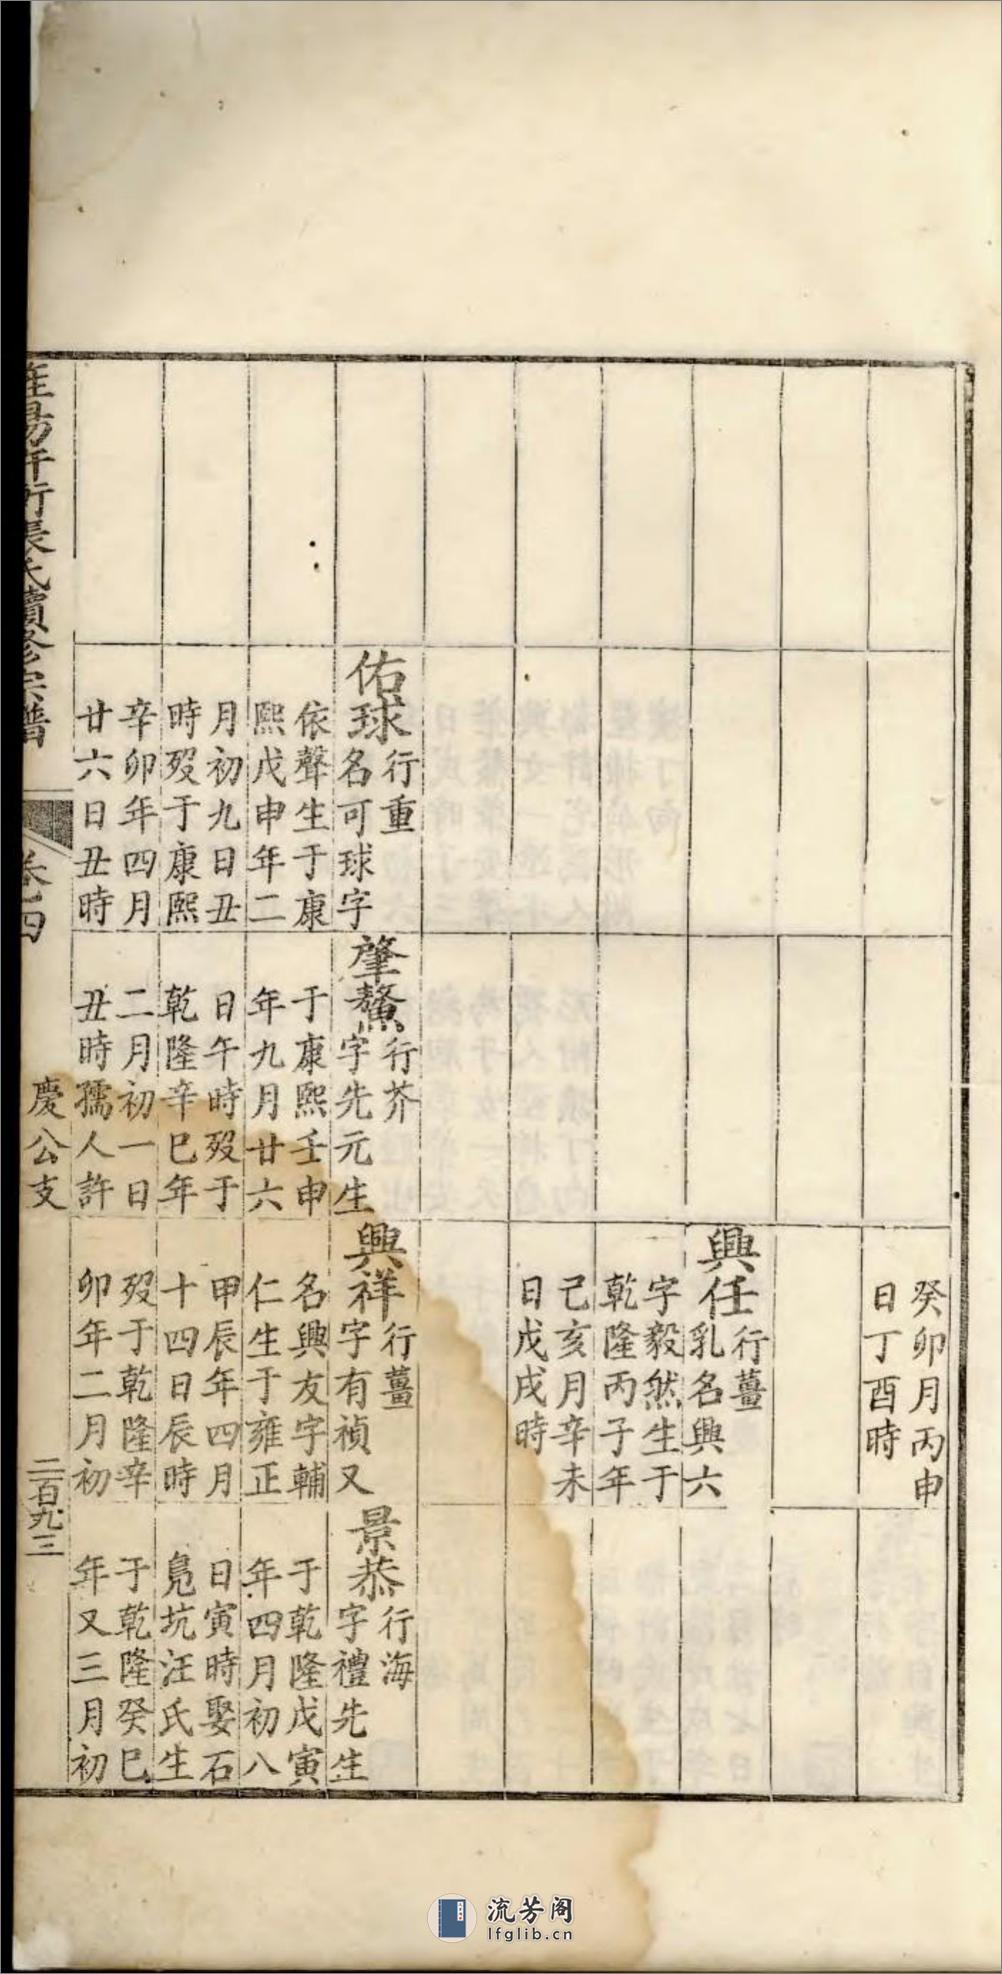 佑球
行重
名可球字
依聲生于康
熙戊申年二
月初九日丑
時歿于康熙
辛卯年四月
廿六日丑時
肇鰲
行芥
字先元生
于康熙壬申
年九月廿六
日午時歿于
乾隆辛巳年
二月初一日
丑時孺人許
癸卯月丙申
日丁酉時
興任
行薑
乳名興六
字毅然生于
乾隆丙子年
己亥月辛未
日戊戌時
興祥
行薑
字有禎又
名興友字輔
仁生于雍正
甲辰年四月
十四日辰時
歿于乾隆辛
卯年二月初
景恭
行海
字禮先生
于乾隆戊寅
年四月初八
日寅時娶石
坑汪氏生
于乾隆癸巳
年又三月初
張氏續修宗譜
卷四
慶公支
二百九三
流芳阁
lfglib.cn